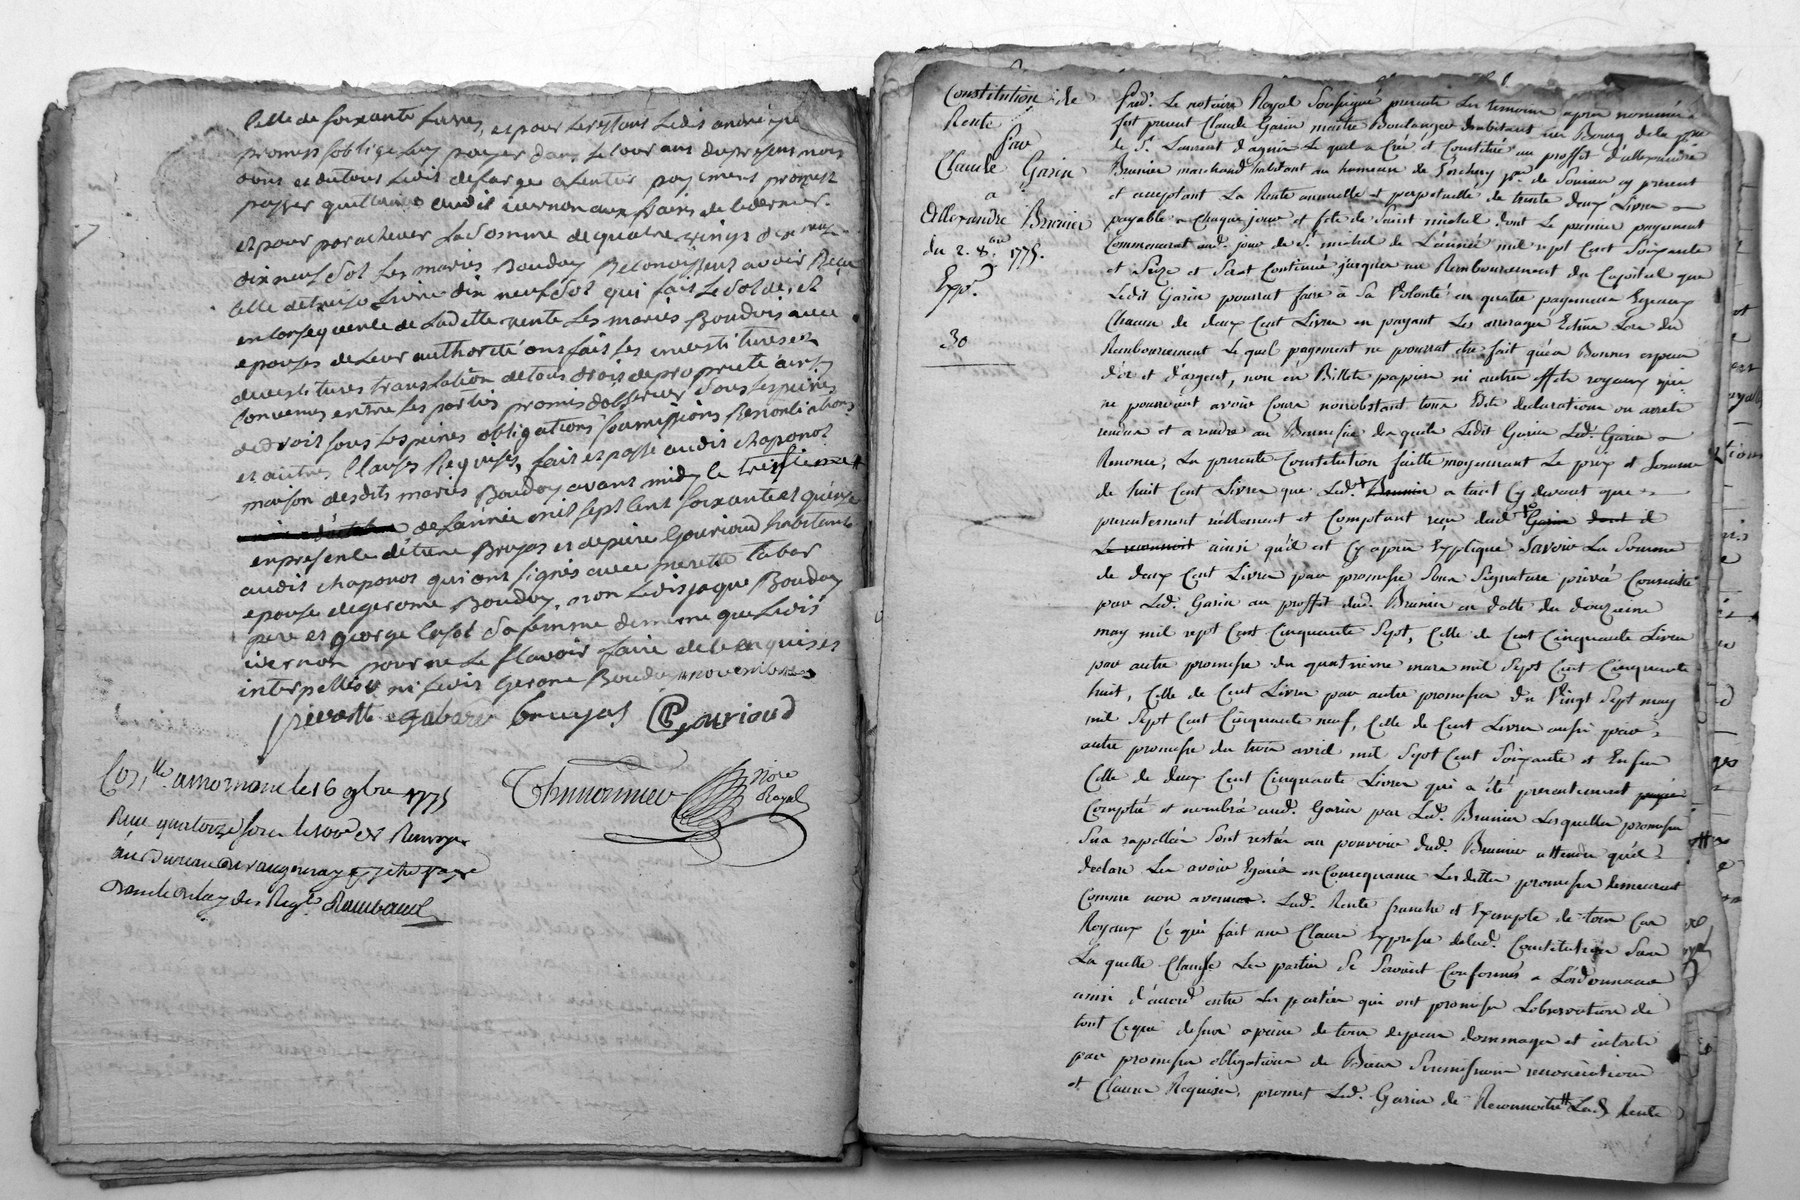 Celle de soixante livres, et pour le restant ledit andré
promest soblige leur payer dans le cour ans du present mois
dont et du tout ledit
payer audit ivernon aux frais de le dernier.
et pour parachever la somme de quatre vingt dix neuf
dix neuf sol les mariés Bouday Reconoissent avoir Reçu
celle de treise livre dix neuf sol qui fait le solde, et
en consequence de ladette vente les mariés Boudois avec
epouses de leur authorité ont fait les investitures et
devestitures translation de tous droit de proprieté ainsy
convenus entre les partis promes dobserver sous les peines
de droit sous les peines obligations soumissions Renontiations
et autres clauses Requises, fait et passé audit chaponos
maison desdits mariés Bouday avant midy le treisieme #
de lannée mil sept cent soixante et quinse
en presence detiene Bruyas et de piere Gourioud habitants
audit chaponos qui ont signés avec pierette Cabar
epouse de gerome Bouday, non ledit jaque Bouday
pere et george sa femme de meme que ledit
ivernon pour ne le sçavoir faire de ce enquis et
interpellés ni ledit Gerome Bouday # novembre
pierette gabard bruyas PGourioud
Con.lle a mornant le 16 9bre 1775
Thimonnier Nore Royal
Reçu quatorze sols
Raimbaud
Constitution de
Rente
par
Claude Garin
a
Allexandre Brunier
du 2. 8.bre 1775.
Exp.é
30
Pard.t Le notaire Royal Soussigné presents les temoins apres nommés
fut present Claude Garin maitre Boulanger habitant au Bourg de la p.sse
de S.t Laurent d'agnin le quel a Créé et Constitué au proffit d'allexandre
Brunier marchand habitant au hameau de p.sse de Soucieu cy present
et acceptant La Rente annuelle et perpetuelle de trente deux Livres
payable a chaque jour et fete de Saint michel dont Le premier payement
Commencerat aud. jour de S.t michel de L'année mil sept Cent Soixante
et Seize et Serat Continué jusques au Remboursement du Capital que
Ledit Garin pourrat faire à Sa Volonté en quatre payements Egeaux
Chacun de deux Cent Livres en payant Les arrerages Echus Lors du
Remboursement Le quel payement ne pourrat etre fait qu'en Bonnes especes
d'or et d'argent, non en Billets papiers ni autres effets royeaux qui
ne pourroient avoir Cours nonobstant tous Edits declarations ou arrets
rendus et a rendre au Benneffice des quels Ledit Garin Led. Garin
Renonce, La presente Constitution faitte moyennant Le prix et Somme
de huit Cent Livres que Led. + Brunier a tant Cy devant que
presentement reellement et Comptant reçu dud. + Garin dont il
Le reconnoit ainsi qu'il est Cy apres Expliqué Savoir La Somme
de deux Cent Livres par promesse Sous Signature privée Consentie
par Led. Garin au proffit dud. Brunier en datte du douzieme
may mil sept Cent Cinquante Sept, Celle de Cent Cinquante Livres
par autre promesse du quatrieme mars mil Sept Cent Cinquante
huit, Celle de Cent Livres par autre promesse du Vingt Sept may
mil Sept Cent Cinquante neuf, Celle de Cent Livres aussi par
autre promesse du trois avril mil Sept Cent Soixante et Enfin
Celle de deux Cent Cinquante Livres qui a été presentement payée
Compté et nombré aud. Garin par Led. Brunier Lesquelles promesses
Sus rapellées Sont restés au pouvoir dud. Brunier attendu qu'il
declare Les avoir Egarés en Consequance Lesdittes promesses demeurent
Comme non avenues. Lad. Rente franche et Exempte de tous Cas
Royeaux Ce qui fait une Clause Expresse delad. Constitution Sans
La quelle Clause Les parties Se Seroient Conformés a L'ordonnance
ainsi d'acord entre Les parties qui ont promises L'observation de
tout Ceque dessus a peine de tous depens dommages et interets
par promesses obligations de Biens Sumissions renonciations
et Clauses Requises, promet Led. Garin de Reconnoitre # Lad. Rente